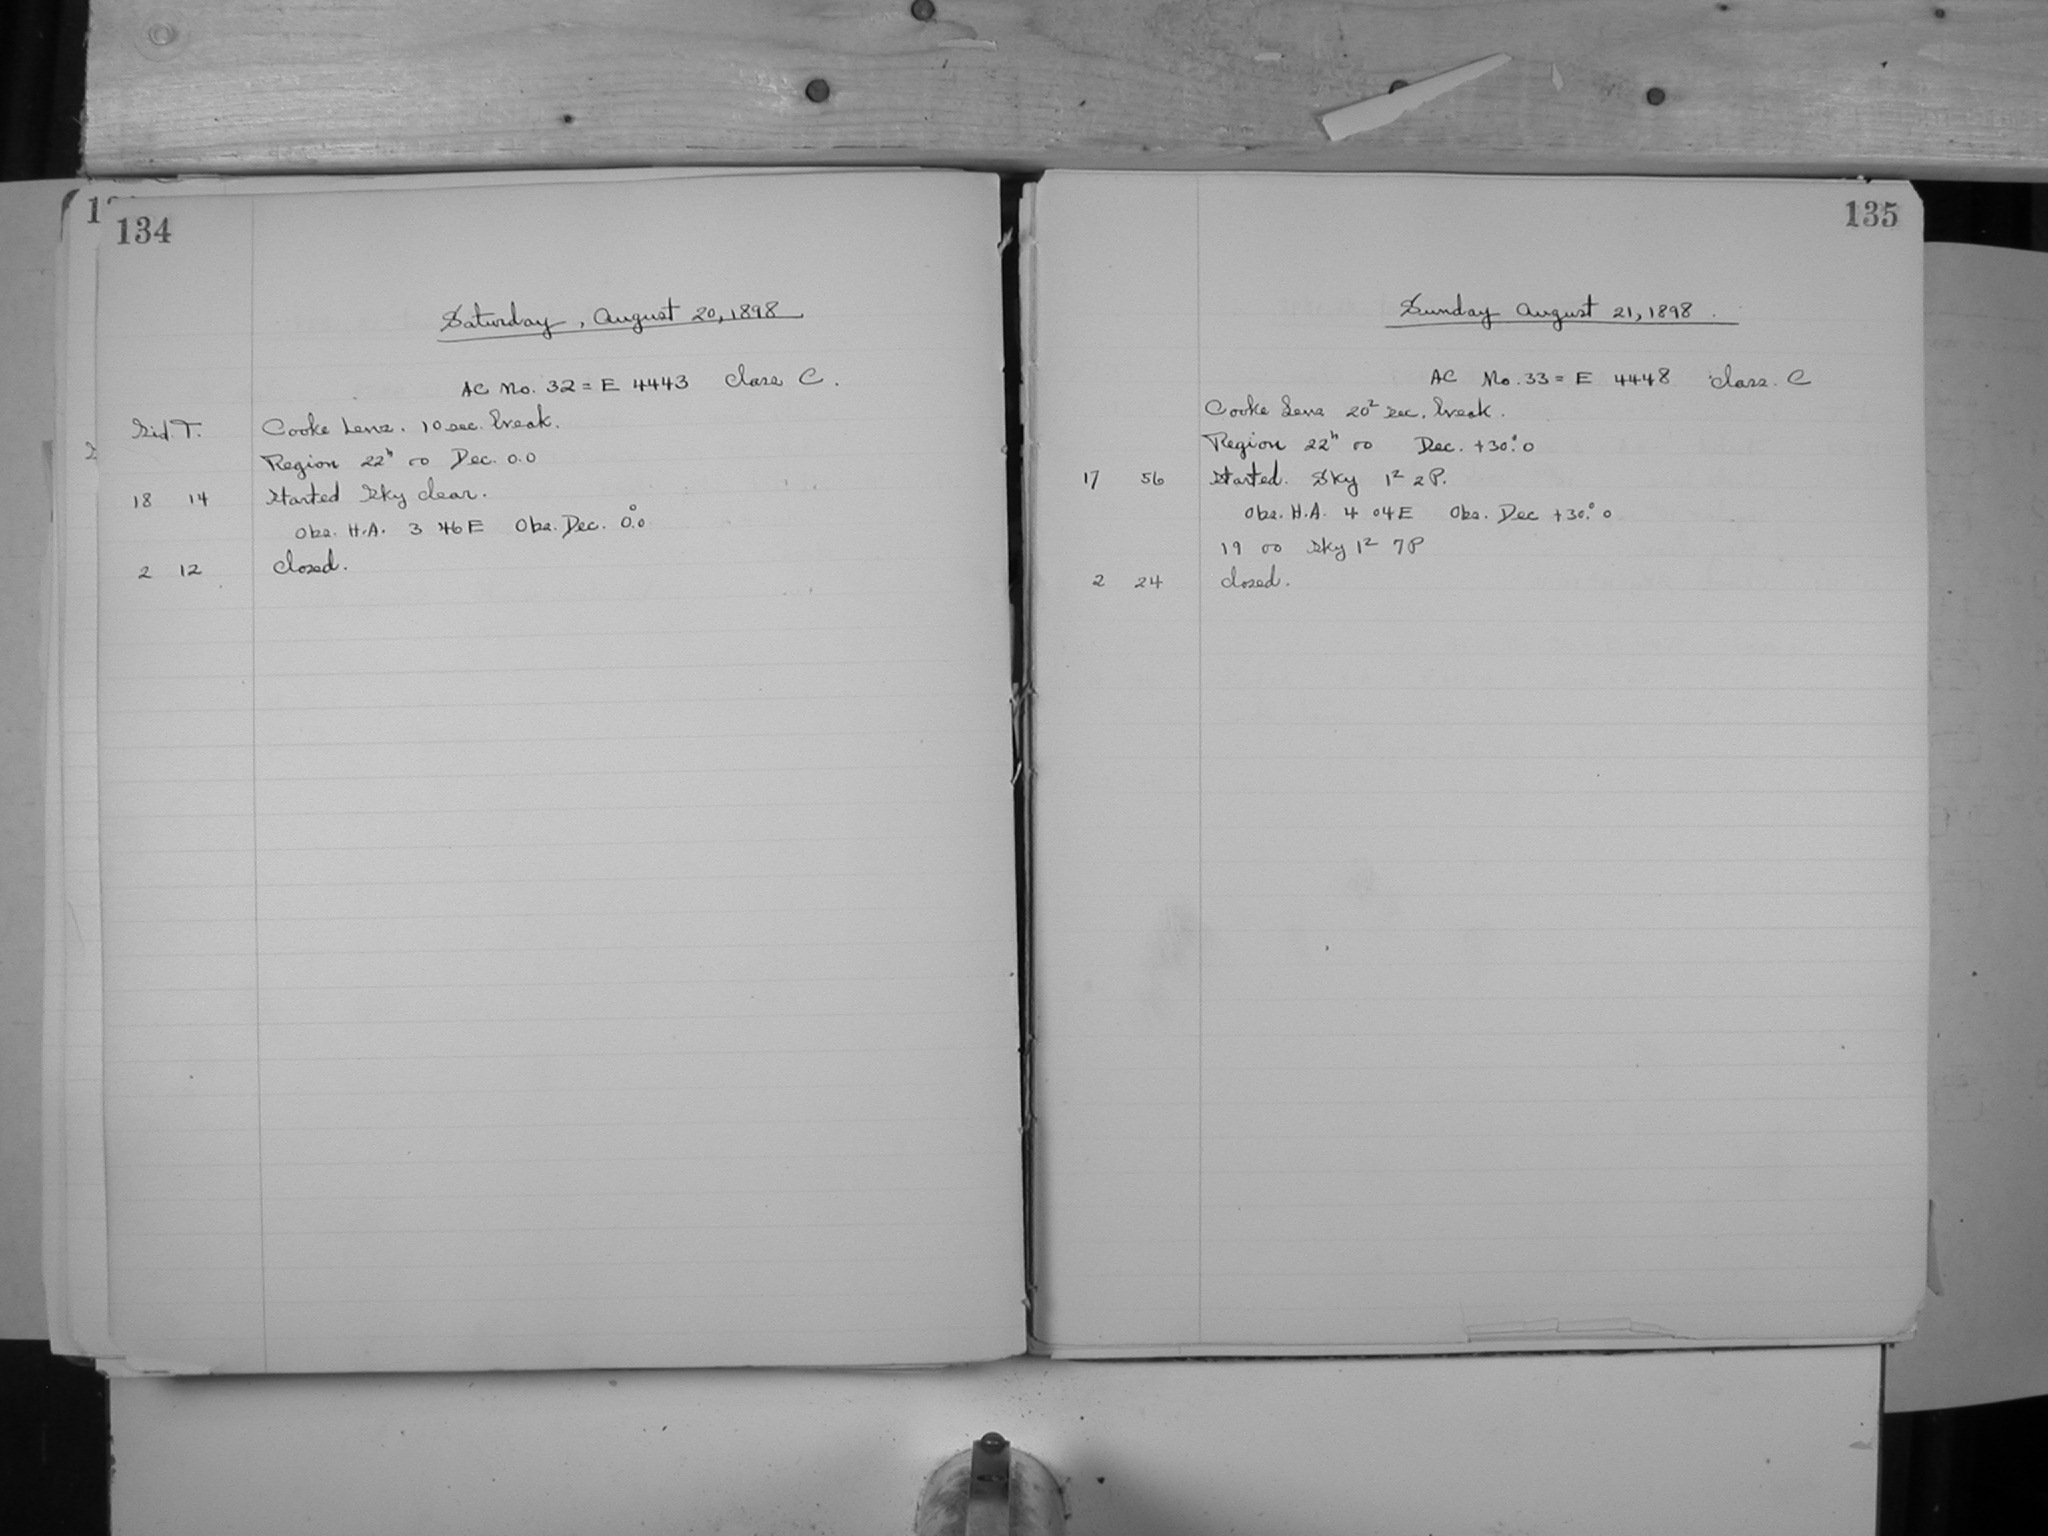 134
Saturday, August 20, 1898
AC No. 32 = E 4443 Class C.
Sid. T. Cooke Lens. 10 sec. break.
Region 22h 00 Dec. 0.0
18 14 Started Sky clear.
Obs. H.A. 3 46 E Obs. Dec. 0°.0
2 12 Closed.
135
Sunday August 21, 1898.
AC No. 33 = E 4448 Class. C
Cooke Lens 20² sec. break.
Region 22h 00 Dec. +30°.0
17 56 Started. Sky 1² 2P.
Obs. H.A. 4 04 E Obs. Dec +30°.0
19 00 Sky 1² 7P
2 24 Closed.